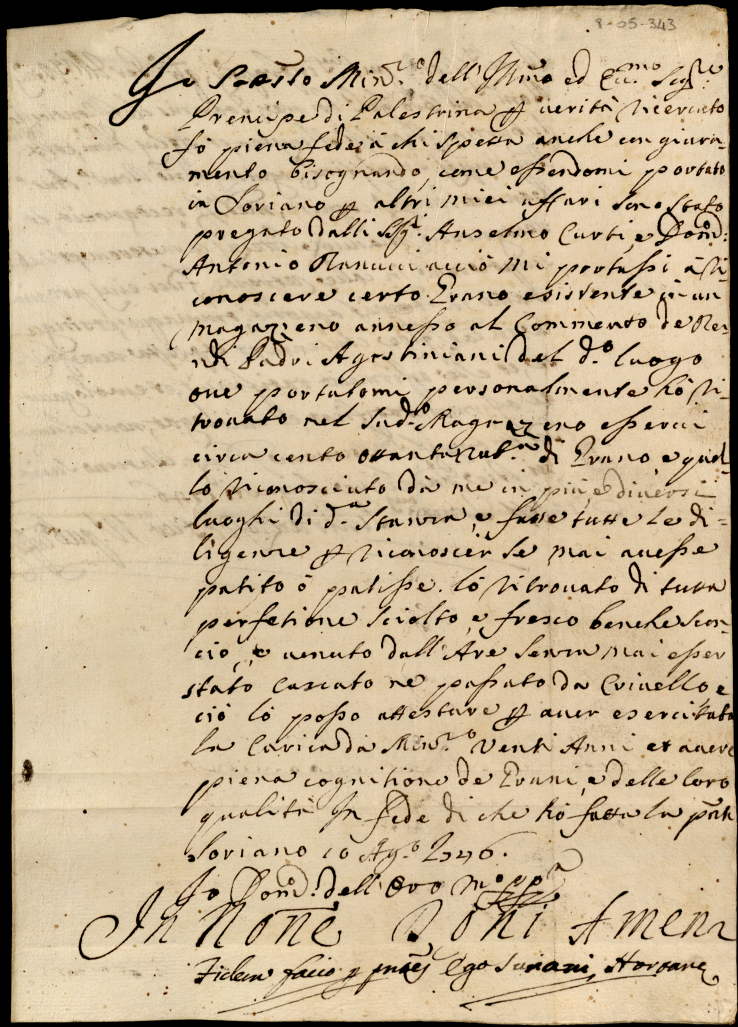 8-05-343
Io Sotto Min.ro dell'Illmo ed Ecc.mo Sig.re
Prencipe di Palestrina p verità ricercato
fò piena fede à chi spetta anche con giura-
mento bisognando, come essendomi portato
in Soriano p altri miei affari sono stato
pregato dalli Sig.i Anselmo Curti, e Dom:
Antonio Ranucci acciò mi portassi à ri-
conoscere certo Grano esistente in un
magazzeno annesso al Convento de Re-
ndi Padri Agostiniani del d.o luogo
ove portatomi personalmente hò ri-
trovato nel sud.o Magazzeno esservi
circa cento ottanta rub.a di Grano e quel-
lo riconosciuto da me in più, e diversi
luoghi di d.a Stanza, e fatte tutte le di-
ligenze p riconoscer se mai avesse
patito ò patisse lò ritrovato di tutta
perfetione sciolto, e fresco benche spor-
cio, e venuto dall'Are senza mai esser
stato cascato ne passato da Crivello e
ciò lò posso attestare p aver esercitato
la Carica da Min.ro Venti Anni et avere
piena cognitione de Grani, e delle loro
qualità In fede di che hò fatta la pnte
Soriano 10 Ag.o 1746.
Io Dom. dell' Ovo m.o pp.a
In Noñe Dñi Amen
Fidem facio p pntes Ego